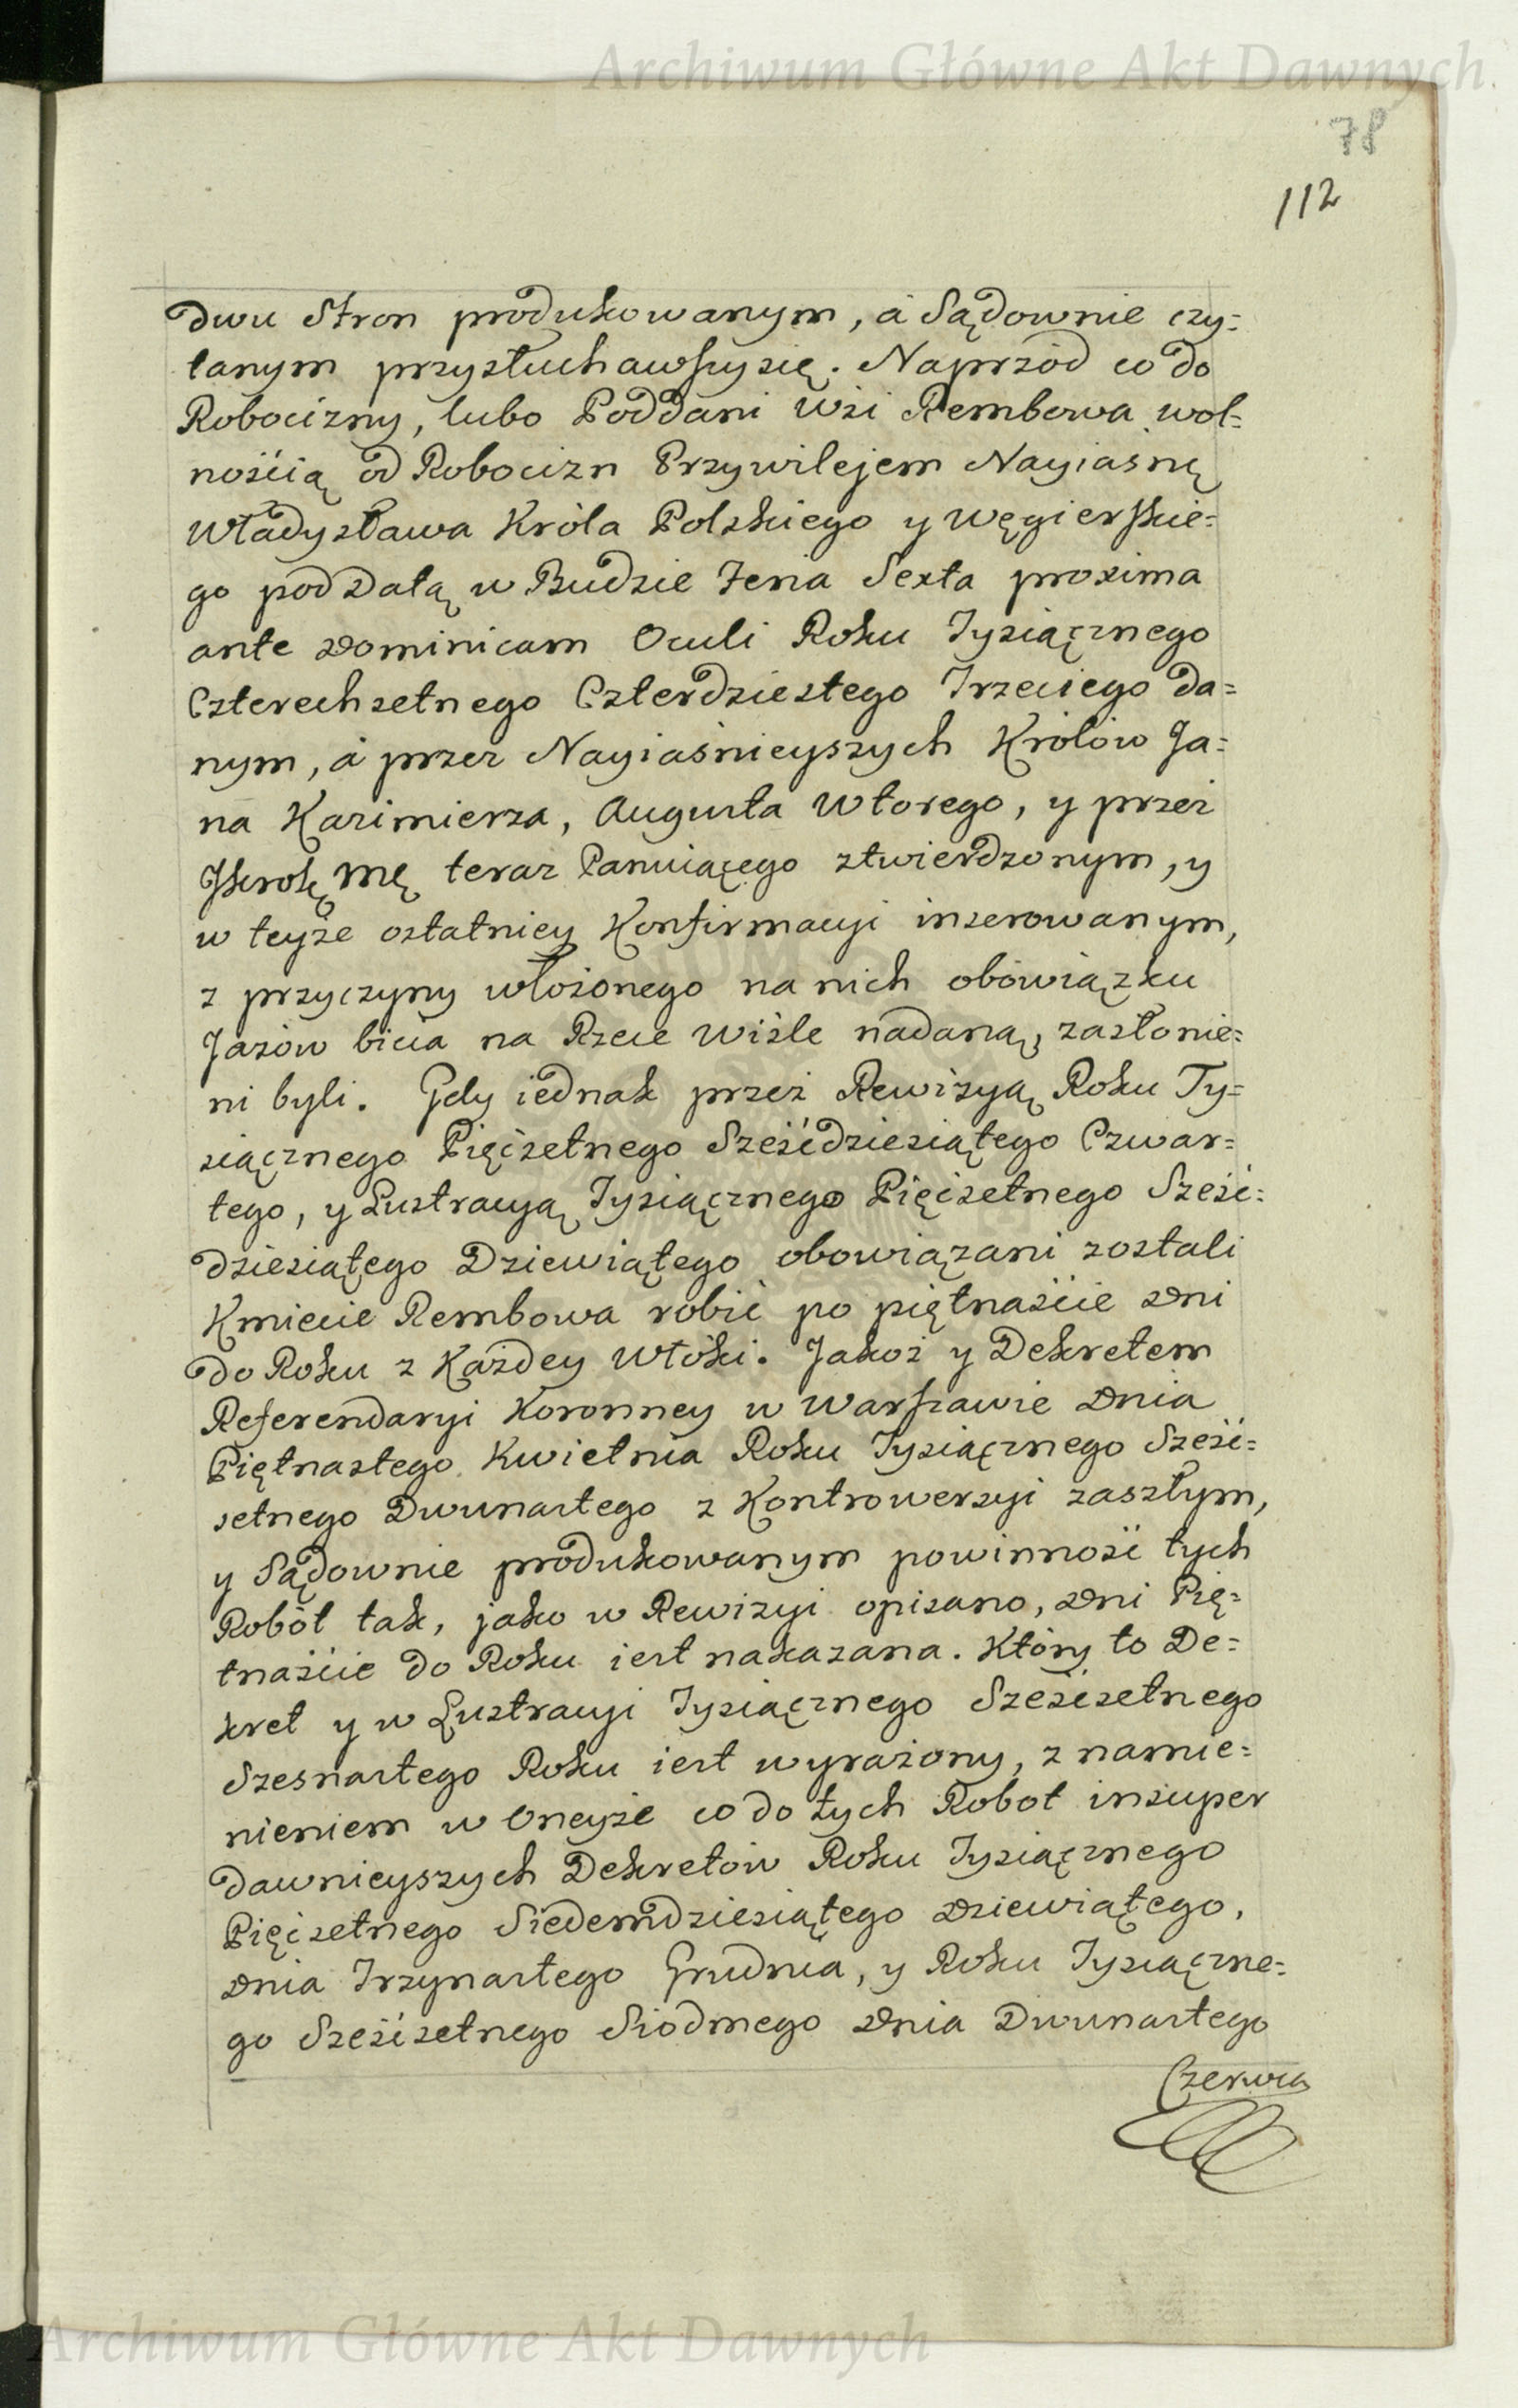 Archiwum Główne Akt Dawnych.
78
112
dwu Stron produkowanym, á Sądownie czy=
tanym przysłuchawszy się. Naprzód co do
Robocizny, lubo Poddani Wsi Rembowa wol=
nością od Robocizn Przywilejem Nayiasnę
Władysława Króla Polskiego y Węgierskie=
go pod Datą w Budzie Feria Sexta proxima
ante Dominicam Oculi Roku Tysiącznego
Czterechsetnego Czterdziestego Trzeciego da=
nym, á przez Nayiaśnieyszych Królów Ja=
na Kazimierza, Augusta Wtorego, y przez
JKrolę Mę teraz Panuiącego ztwierdzonym, y
w teyże ostatniey Konfirmacyi inserowanym,
z przyczyny włożonego na nich obowiązku
Jazów bicia na Rzece Wiśle nadaną, zasłonie=
ni byli. Gdy iednak przez Rewizyą Roku Ty=
siącznego Pięćsetnego Sześćdziesiątego Czwar=
tego, y Lustracyą Tysiącznego Pięćsetnego Sześć=
dziesiątego Dziewiątego obowiązani zostali
Kmiecie Rembowa robić po piętnaście Dni
do Roku z Każdey Włóki. Jakoż y Dekretem
Referendaryi Koronney w Warszawie Dnia
Piętnastego Kwietnia Roku Tysiącznego Sześć=
setnego Dwunastego z Kontrowersyi zaszłym,
y Sądownie produkowanym powinność tych
Robót tak, jako w Rewizyi opisano, Dni Pię=
tnaście do Roku iest nakazana. Który to De=
kret y w Lustracyi Tysiącznego Sześćsetnego
Szesnastego Roku iest wyrażony, z namie=
nieniem w Oneyże co do tych Robot insuper
dawnieyszych Dekretów Roku Tysiącznego
Pięćsetnego Siedemdziesiątego Dziewiątego,
Dnia Trzynastego Grudnia, y Roku Tysiączne=
go Sześćsetnego Siódmego Dnia Dwunastego
Czerwca
Archiwum Główne Akt Dawnych